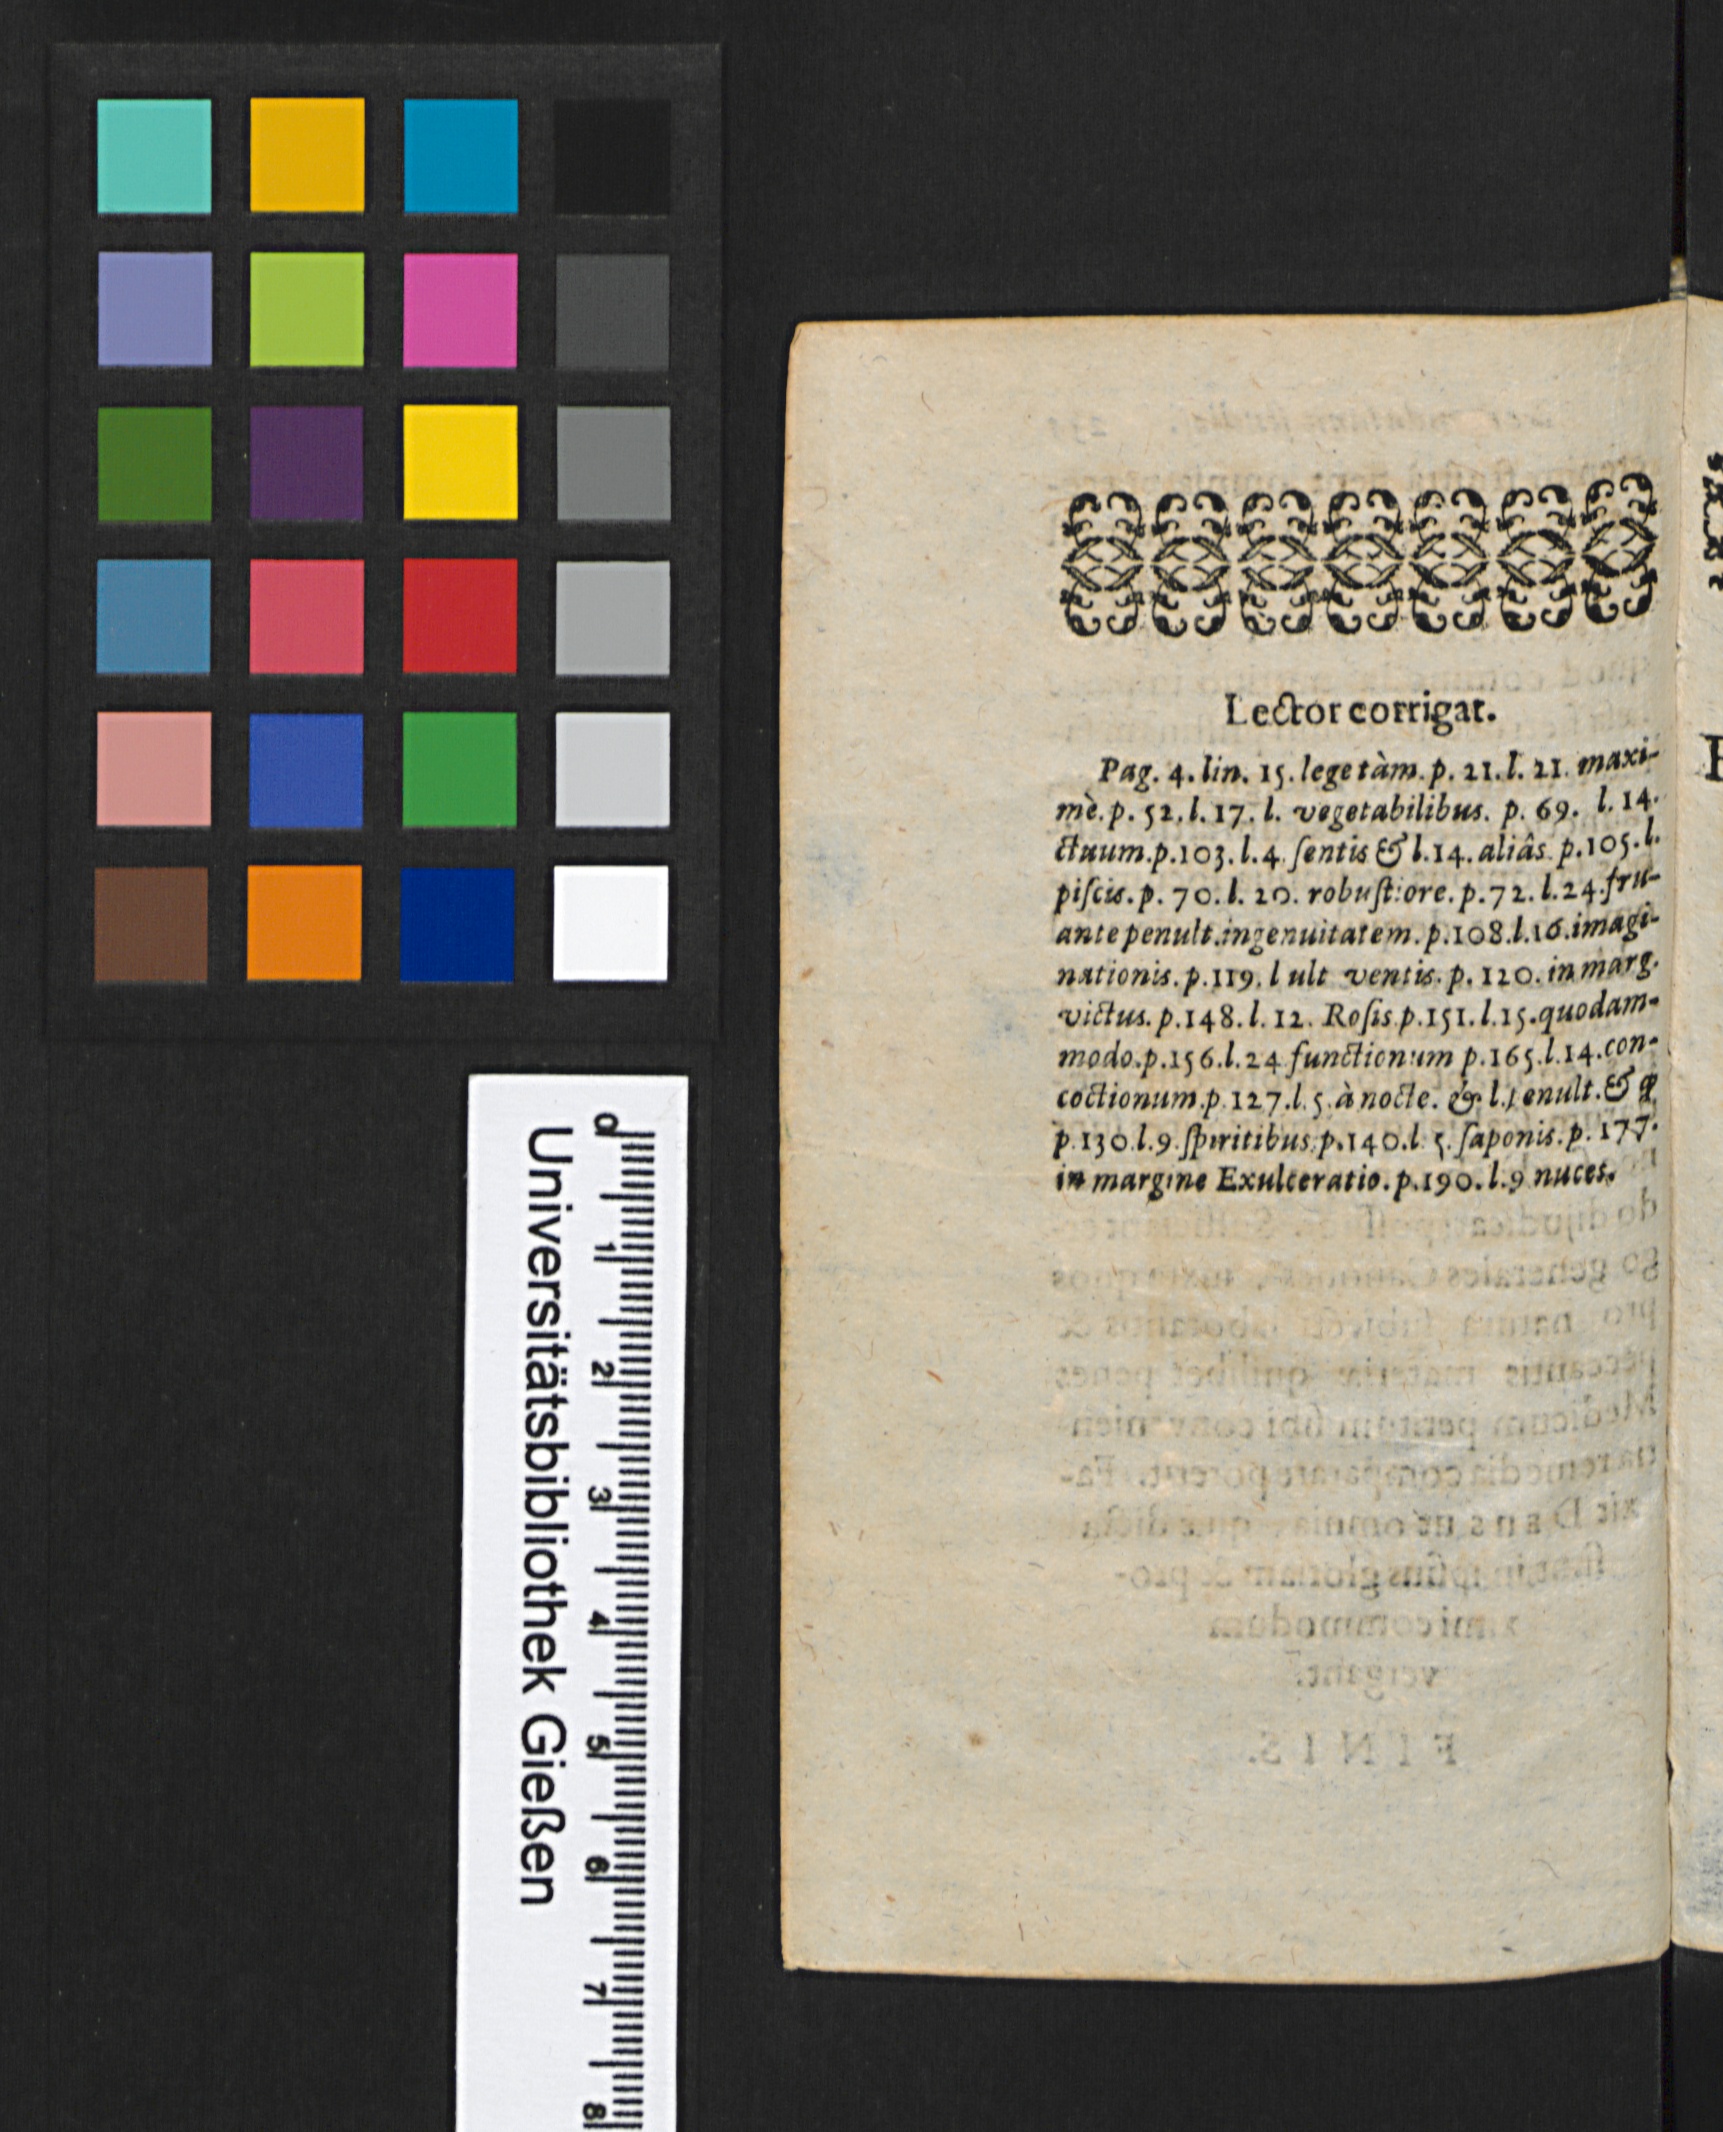 Lector corrigat.
Pag. 4. lin. 15. lege tàm. p. 21. l. 21. maxi-
mè. p. 52. l. 17. l. vegetabilibus. p. 69. l. 14.
ctuum. p. 103. l. 4. ſentis & l. 14. aliâs. p. 105. l.
piſcis. p. 70. l. 20. robuſtiore. p. 72. l. 24. fru-
antepenult. ingenuitatem. p. 108. l. 16. imagi-
nationis. p. 119. l ult ventis. p. 120. in marg.
victus. p. 148. l. 12. Roſis p. 151. l. 15. quodam-
modo. p. 156. l. 24 functionum p. 165. l. 14. con-
coctionum. p. 127. l. 5. à nocte. & l. penult. &
p. 130. l. 9. ſpiritibus. p. 140. l. 5. ſaponis. p. 177.
in margine Exulceratio. p. 190. l. 9 nuces.
FINIS.
0 1 2 3 4 5 6 7 8
Universitätsbibliothek Gießen